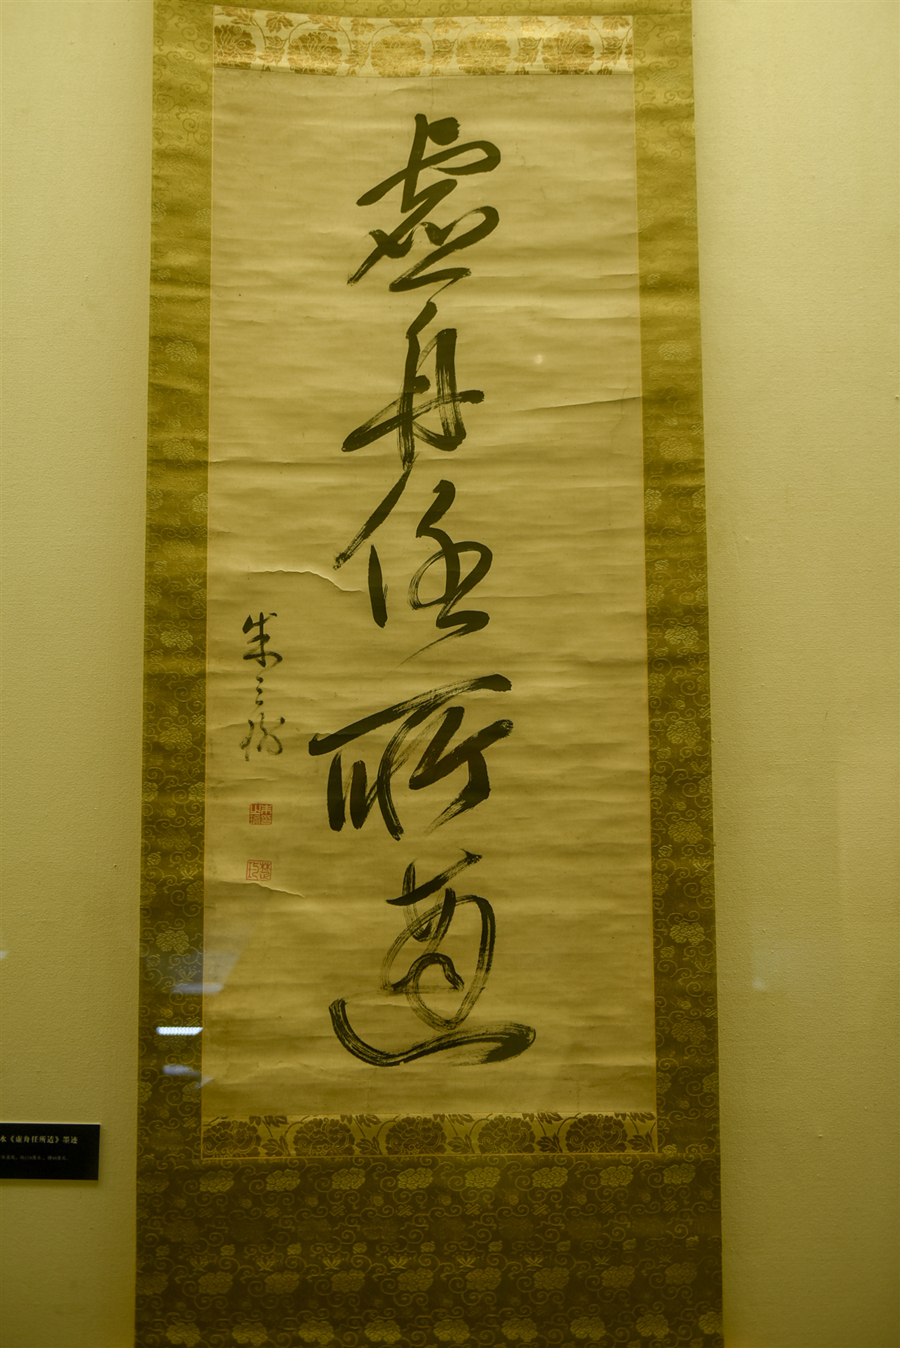 虚舟任所適
朱之瑜
水《虚舟任所适》墨迹